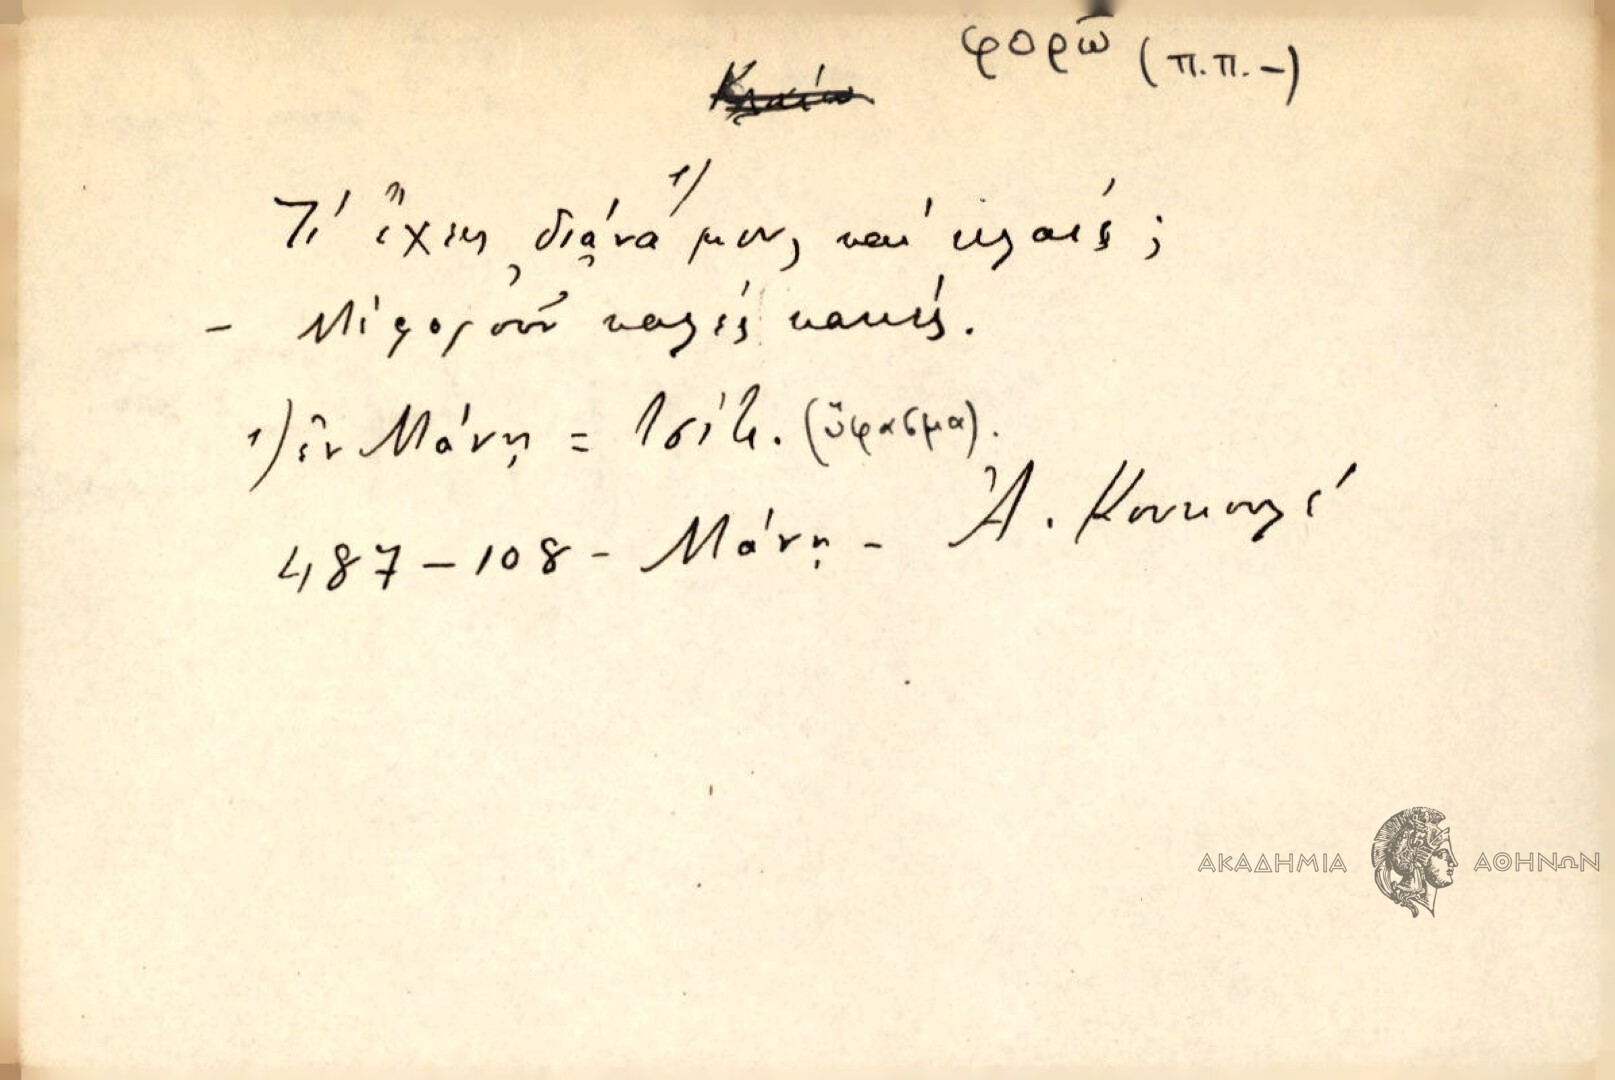 φορῶ (π.π. -)
Κλαίω
Τί ἔχεις, διάνα ¹⁾ μου, καί κλαίς;
- Μέ φοροῦν καλές κακές.
1) ἐν Μάνῃ = τσίτι. (ὕφασμα).
487 - 108 - Μάνη - Ἀ. Κουκουλέ
ΑΚΑΔΗΜΙΑ ΑΘΗΝΩΝ